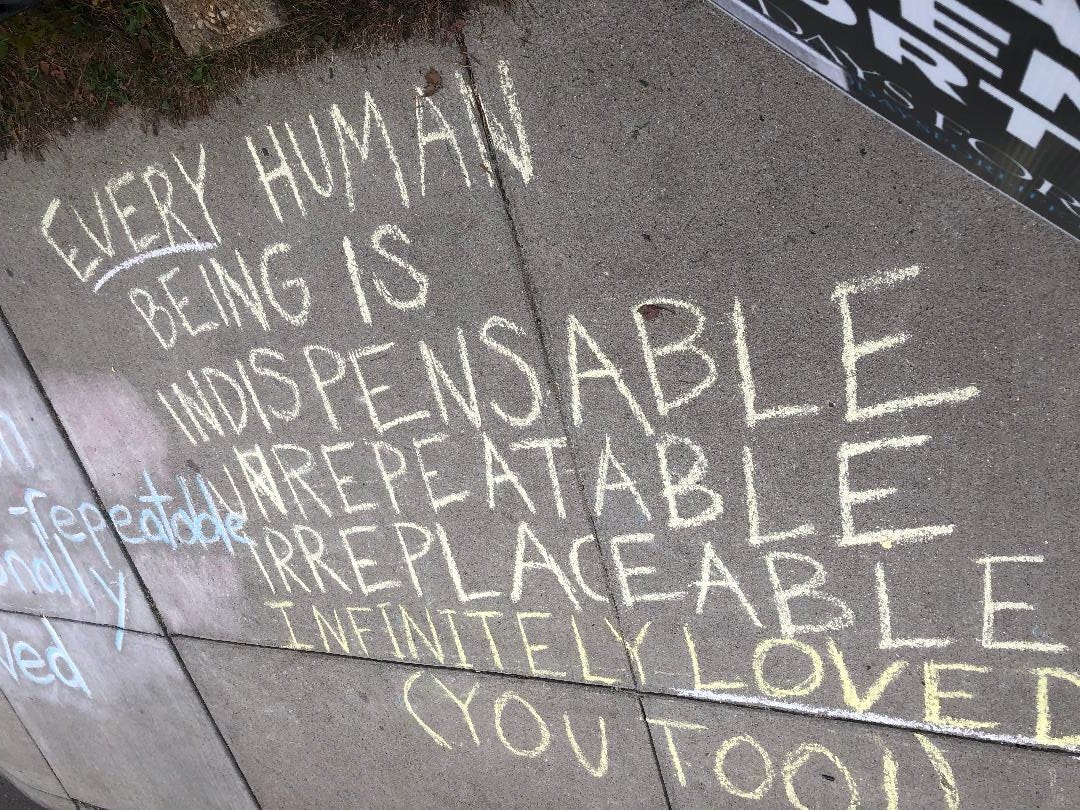 EVERY HUMAN
BEING IS
INDISPENSABLE
UNREPEATABLE
IRREPLACEABLE
INFINITELY LOVED
(YOU TOO!)
n
-repeatable
onally
ved
DAYS FOR